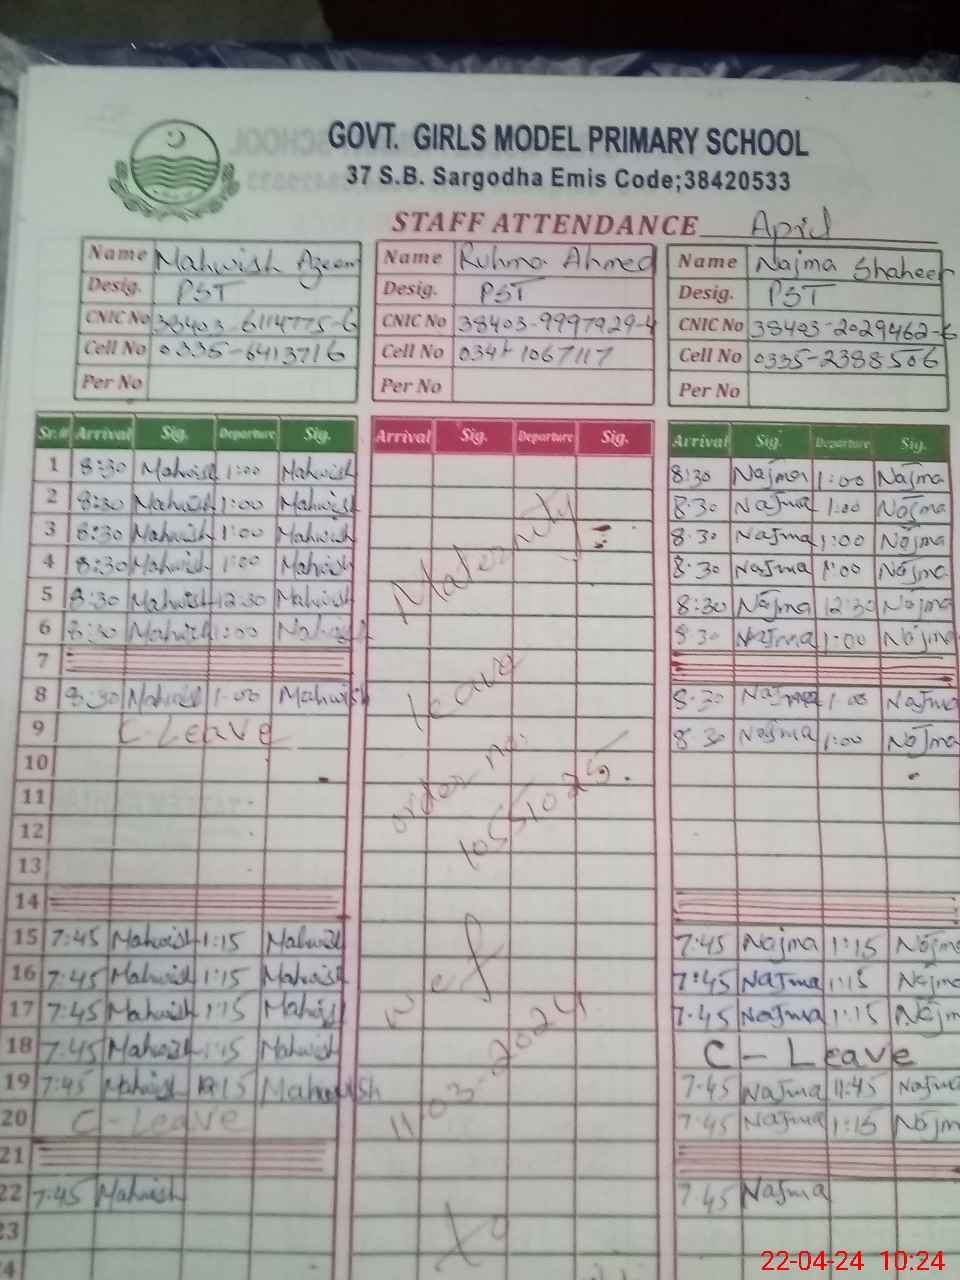 GOVT. GIRLS MODEL PRIMARY SCHOOL
37 S.B. Sargodha Emis Code;38420533
STAFF ATTENDANCE April
Name Mahwish Azeem Name Ruhma Ahmed Name Najma Shaheen
Desig. PST Desig. PST Desig. PST
CNIC No 38403-6114775-6 CNIC No 38403-9997929-4 CNIC No 38403-2029462-6
Cell No 0335-6413716 Cell No 0341-1067117 Cell No 0335-2388506
Per No Per No Per No
Sr.# Arrival Sig. Departure Sig. Arrival Sig. Departure Sig. Arrival Sig. Departure Sig.
1 8:30 Mahwish 1:00 Mahwish 8:30 Najma 1:00 Najma
2 8:30 Mahwish 1:00 Mahwish 8:30 Najma 1:00 Najma
3 8:30 Mahwish 1:00 Mahwish 8:30 Najma 1:00 Najma
4 8:30 Mahwish 1:00 Mahwish 8:30 Najma 1:00 Najma
5 8:30 Mahwish 12:30 Mahwish 8:30 Najma 12:30 Najma
6 8:30 Mahwish 1:00 Mahwish 8:30 Najma 1:00 Najma
7
8 8:30 Mahwish 1:00 Mahwish 8:30 Najma 1:00 Najma
9 C-Leave 8:30 Najma 1:00 Najma
10
11
12
13
14
15 7:45 Mahwish 1:15 Mahwish 7:45 Najma 1:15 Najma
16 7:45 Mahwish 1:15 Mahwish 7:45 Najma 1:15 Najma
17 7:45 Mahwish 1:15 Mahwish 7:45 Najma 1:15 Najma
18 7:45 Mahwish 1:15 Mahwish C-Leave
19 7:45 Mahwish Mahwish 7:45 Najma 11:45 Najma
20 C-Leave 7:45 Najma 1:15 Najma
21
22 7:45 Mahwish 7:45 Najma
23
Maternity
leave
order no:
10551025.
w e f
11-03-2024
to
22-04-24 10:24